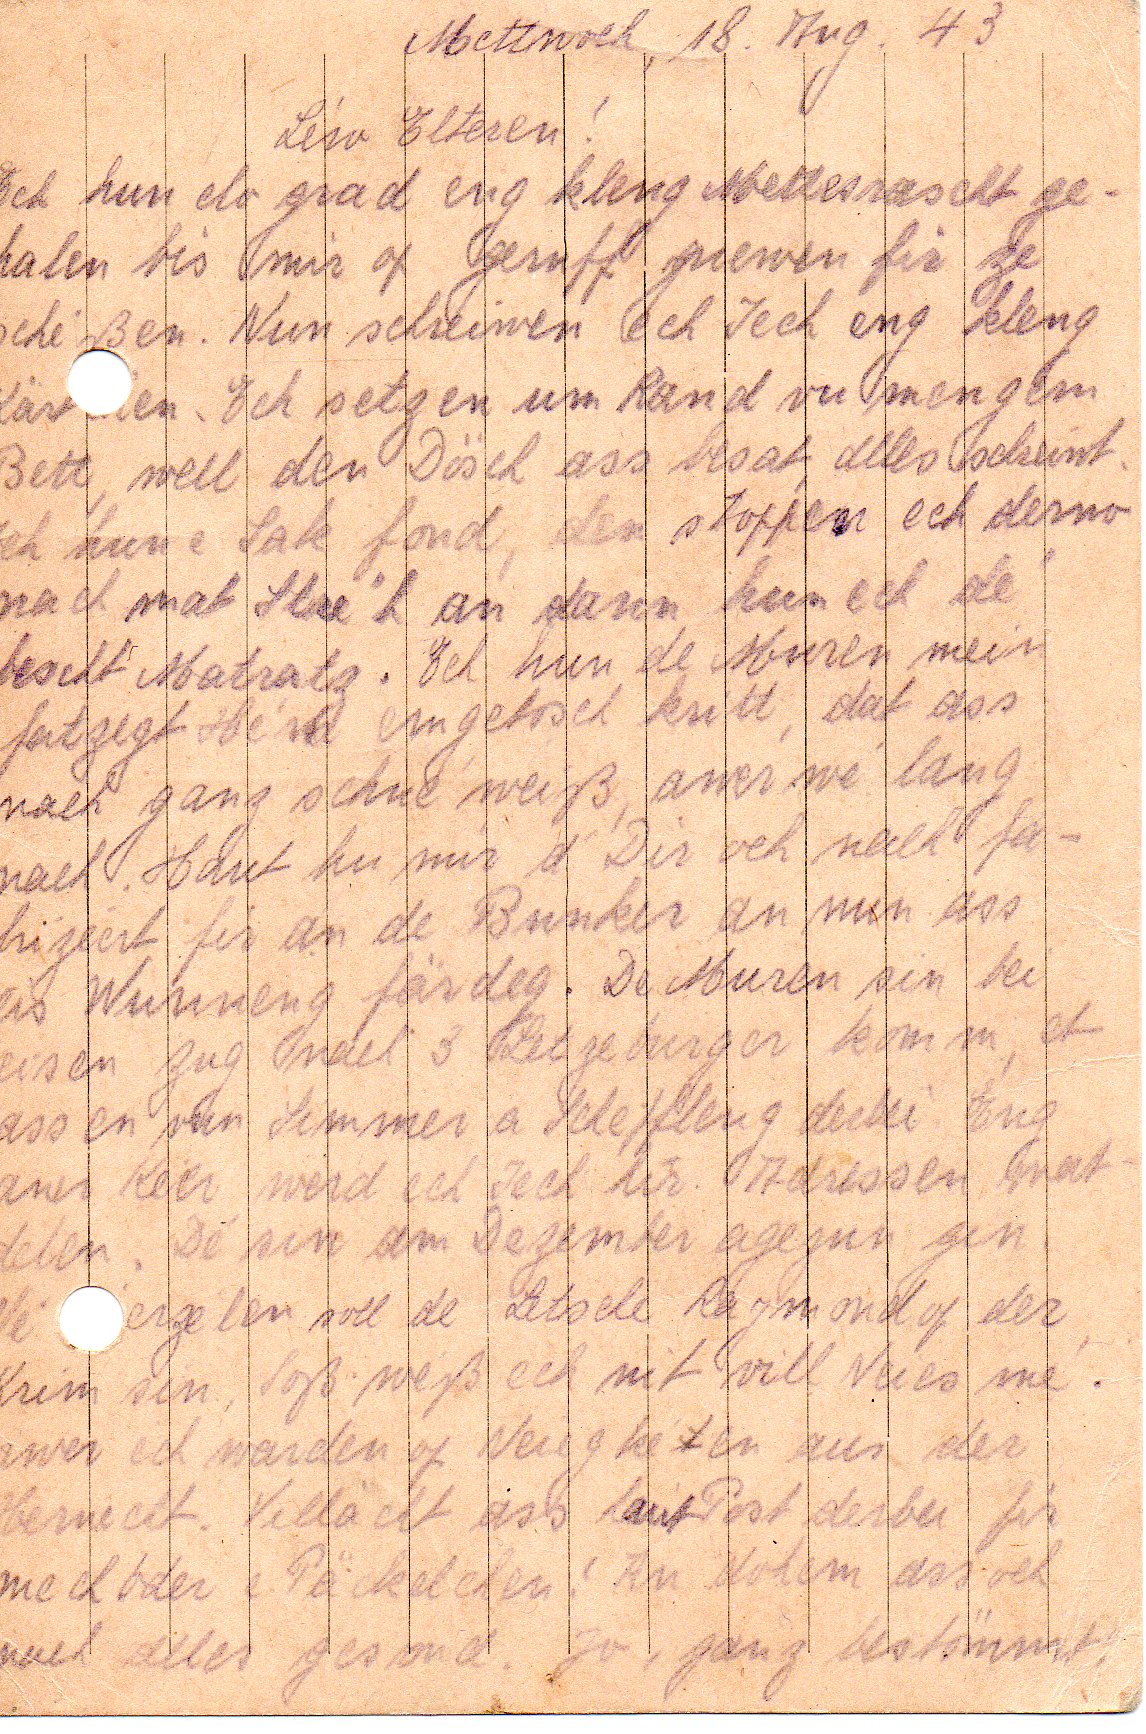 Mettwoch, 18. Aug. 43
Léiw Elteren!
Ech hun elo grad eng kleng Mettesrascht ge-
halen bis mir op geruff guewen fir ze
schéißen. Nun schreiwen ech Iech eng kleng
Ech setzen um Rand vu mengem
Bett, well den Dösch ass besat, alles schreint.
Ech hun e Sak fond, den stoppen ech derno
nach mat Stréh an dann hun ech dé
bescht Matratz. Ech hun de Muren mein
fatzegt Hémd emgetosch kritt, dat ass
nach ganz schné weiß, awer wé lang
nach. Haut hu mir d'Dir och nach fa-
brizéert fir an de Bunker an nun ass
eis Wunneng färdeg. De Muren sin bei
eisen Zug nach 3 Letzeburger komm, et
assen vun Simmer a Scheffleng derbei. Eng
aner Kéer werd ech Iech hir Adressen mat-
delen. Dé sin am Dezember agezun gin.
soll de Letsch Raymond op der
Krim sin. Soß weiß ech nit vill Neies mé.
awer ech warden op Neiegketen aus der
Hemecht. Villäicht ass haut Post derbei fir
mech oder e Päckelchen! An dohem ass och
nach alles gesond. Jo, ganz bestömmt!